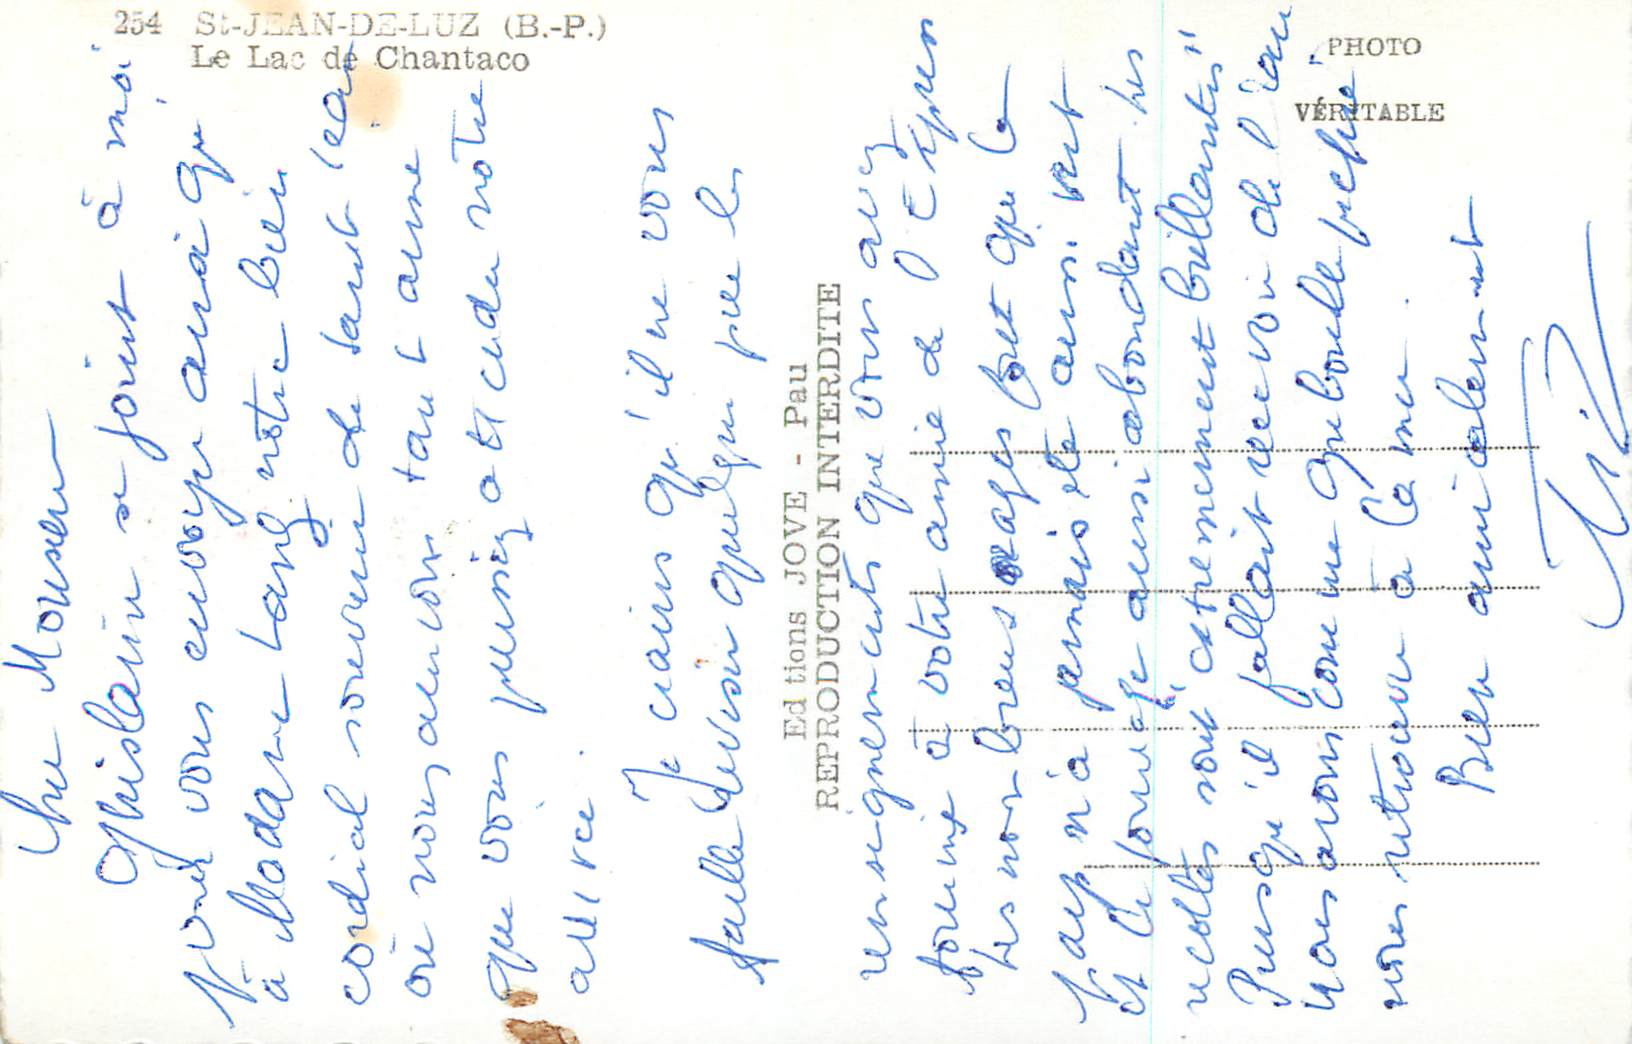 254 St-JEAN-DE-LUZ (B.-P.)
Le Lac de Chantaco
PHOTO
VÉRITABLE
Ed tions JOVE - Pau
REPRODUCTION INTERDITE
Cher Monsieur
Ghislaine se joint à moi
pour vous envoyer ainsi qu'
à Madame Lang notre bien
cordial souvenir de Saint Jean
où nous aurions tant aimé
que vous puissiez attendre notre
arrivée.
Je crains qu'il ne vous
faille quelque peu les
renseignements que vous avez
fournis à votre amie de l'Express
Les nombreux orages font que le
pays n'a jamais été aussi vert
et le fourrage aussi abondant. Les
récoltes sont "extrêmement brillantes"
Puisqu'il fallait recevoir de l'eau
nous avons comme Gribouille préféré
nous retrouver à la mer.
Bien amicalement